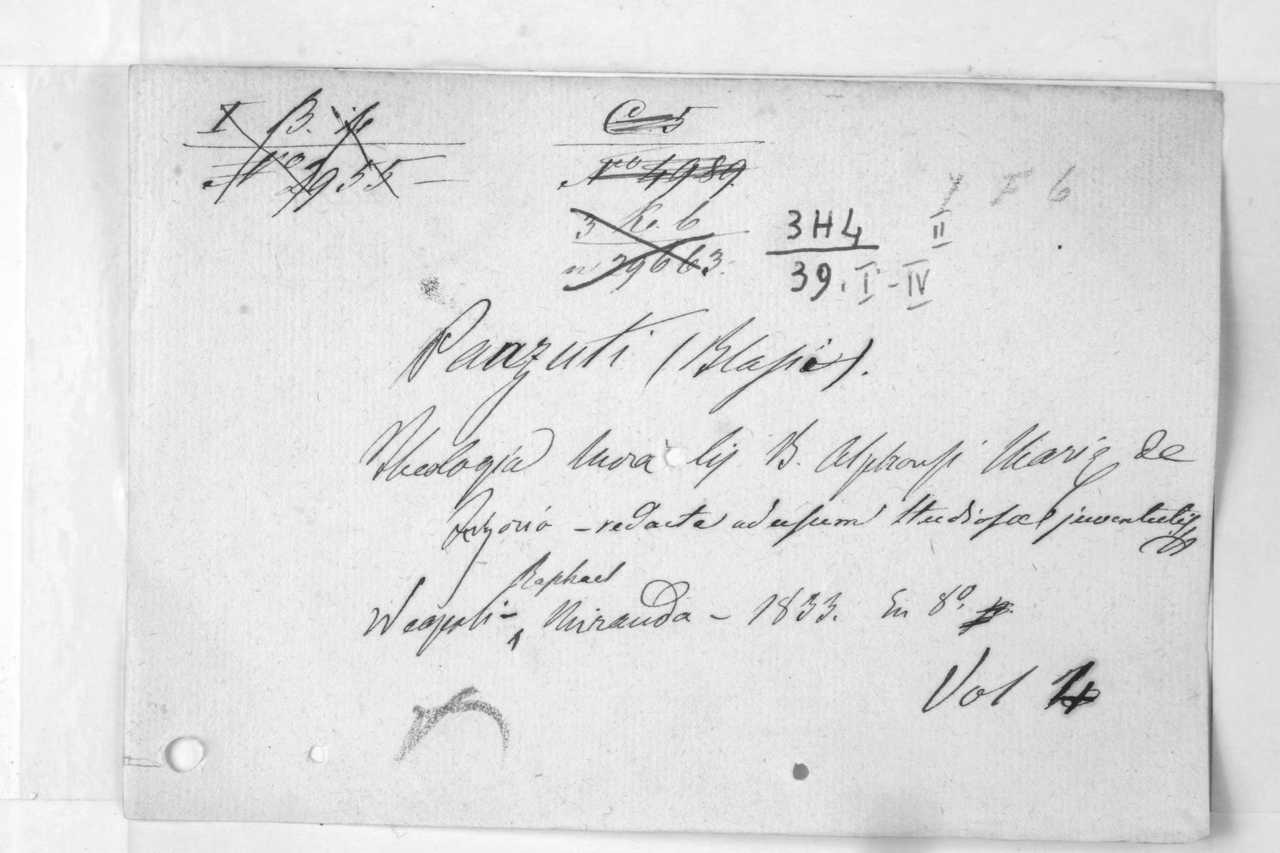 I B. 4
Nº 2955
C 5
Nº 4989
3 K. 6
nº 29663.
I F 6
3H4 II
39. I - IV
Panzuti (Blasio).
Theologia Moralis B. Alphonsi Mariæ de
Ligorio - redacta ad usum studiosæ juventutis
Raphael
Neapoli - Miranda - 1833. En 8º.
Vol 4